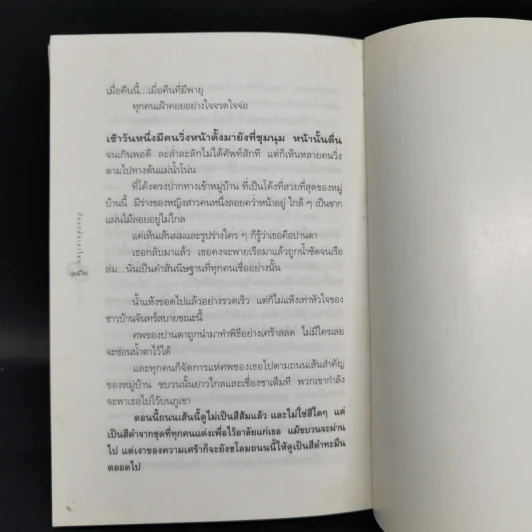 เมื่อคืนนี้...เมื่อคืนที่มีพายุ
ทุกคนเฝ้าคอยอย่างใจจรดใจจ่อ
เช้าวันหนึ่งมีคนวิ่งหน้าตั้งมายังที่ชุมนุม หน้านั้นตื่น
จนเกินพอดี ละล่ำละลักไม่ได้ศัพท์สักที แต่ก็เห็นหลายคนวิ่ง
ตามไปทางต้นแม่น้ำโน่น
ที่โค้งตรงปากทางเข้าหมู่บ้าน ที่เป็นโค้งที่สวยที่สุดของหมู่
บ้านนี้ มีร่างของหญิงสาวคนหนึ่งลอยคว่ำหน้าอยู่ ใกล้ ๆ เป็นซาก
แผ่นไม้ลอยอยู่ไม่ไกล
แค่เห็นเส้นผมและรูปร่างใคร ๆ ก็รู้ว่าเธอคือปานตา
เธอกลับมาแล้ว เธอคงจะพายเรือมาแล้วถูกน้ำซัดจนเรือ
ล่ม...นั่นเป็นคำสันนิษฐานที่ทุกคนเชื่ออย่างนั้น
น้ำแห้งขอดไปแล้วอย่างรวดเร็ว แต่ก็ไม่แห้งเท่าหัวใจของ
ชาวบ้านจันทร์สบายขณะนี้
ศพของปานตาถูกนำมาทำพิธีอย่างเศร้าสลด ไม่มีใครเลย
จะซ่อนน้ำตาไว้ได้
และทุกคนก็จัดการแห่ศพของเธอไปตามถนนเส้นสำคัญ
ของหมู่บ้าน ขบวนนั้นยาวไกลและเชื่องช้าเต็มที พวกเขากำลัง
จะพาเธอไปไว้บนภูเขา
ตอนนี้ถนนเส้นนี้ดูไม่เป็นสีส้มแล้ว และไม่ใช่สีใดๆ แต่
เป็นสีดำจากชุดที่ทุกคนแต่งเพื่อไว้อาลัยแก่เธอ แม้ขบวนจะผ่าน
ไป แต่เงาของความเศร้าก็จะยังชโลมถนนนี้ให้ดูเป็นสีดำทะมึน
ตลอดไป